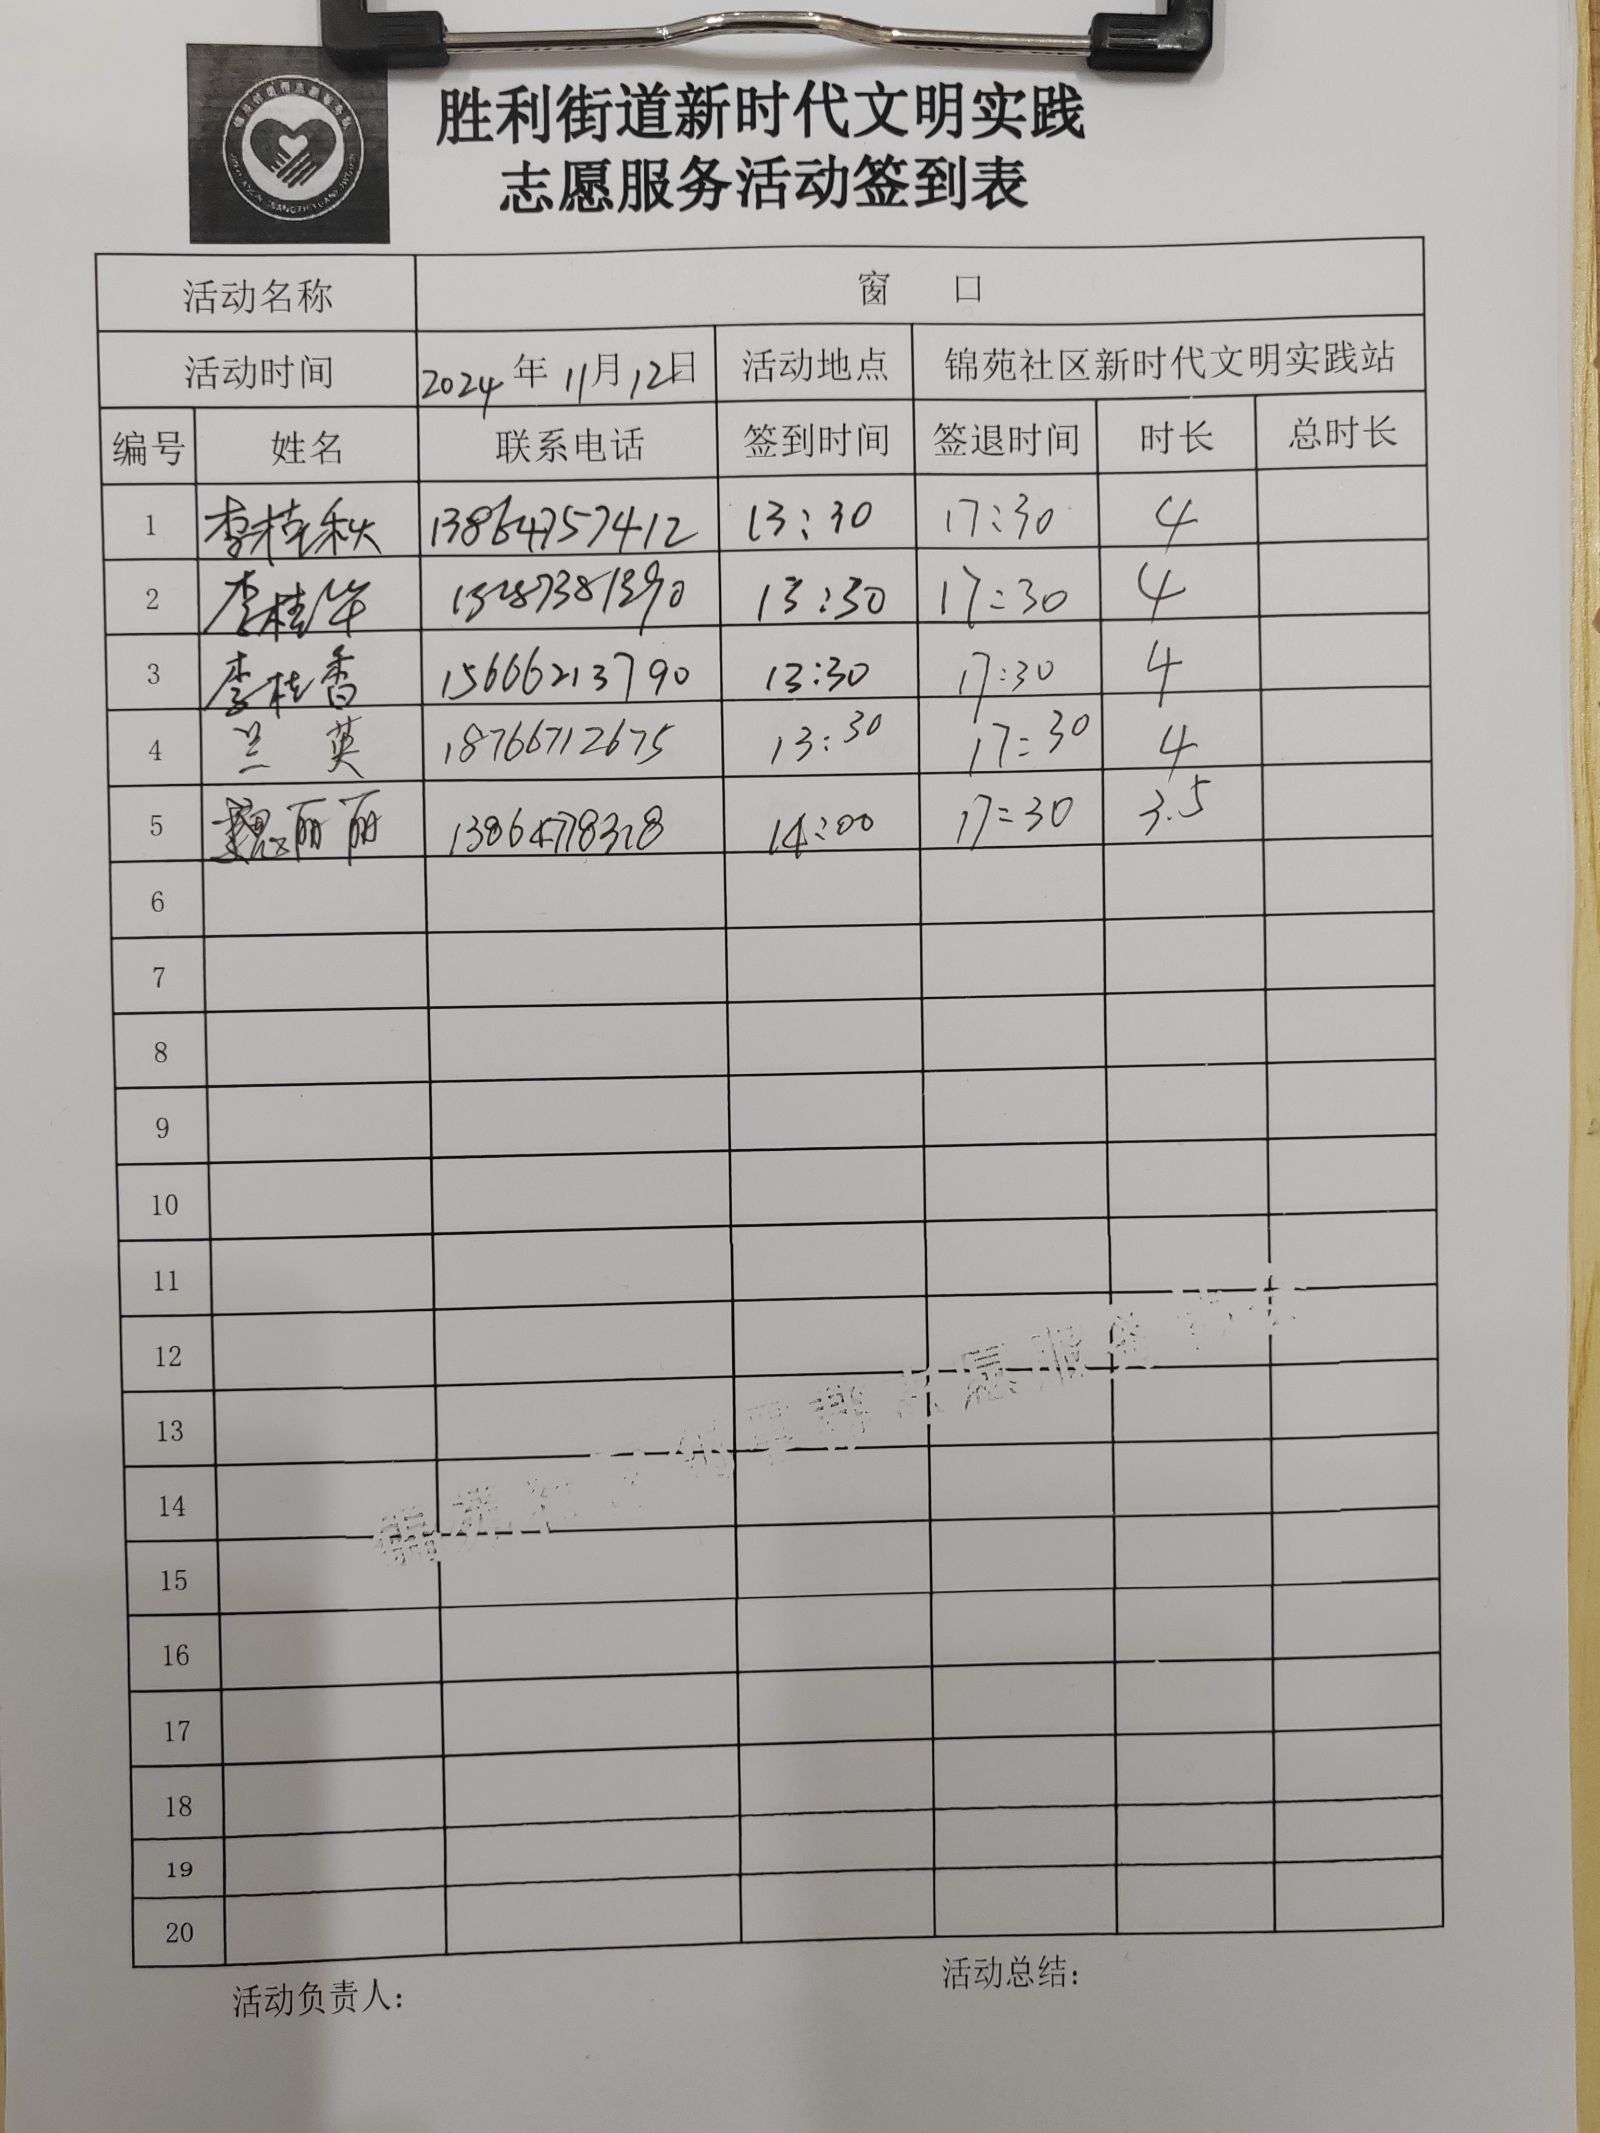 胜利街道新时代文明实践
志愿服务活动签到表
活动名称 窗 口
活动时间 2024年11月12日 活动地点 锦苑社区新时代文明实践站
编号 姓名 联系电话 签到时间 签退时间 时长 总时长
1 李桂秋 13864757412 13:30 17:30 4
2 李桂华 13287381390 13:30 17:30 4
3 李桂香 15666213790 13:30 17:30 4
4 兰英 18766712675 13:30 17:30 4
5 魏丽丽 13864778328 14:00 17:30 3.5
6
7
8
9
10
11
12
13
14
15
16
17
18
19
20
活动负责人： 活动总结：